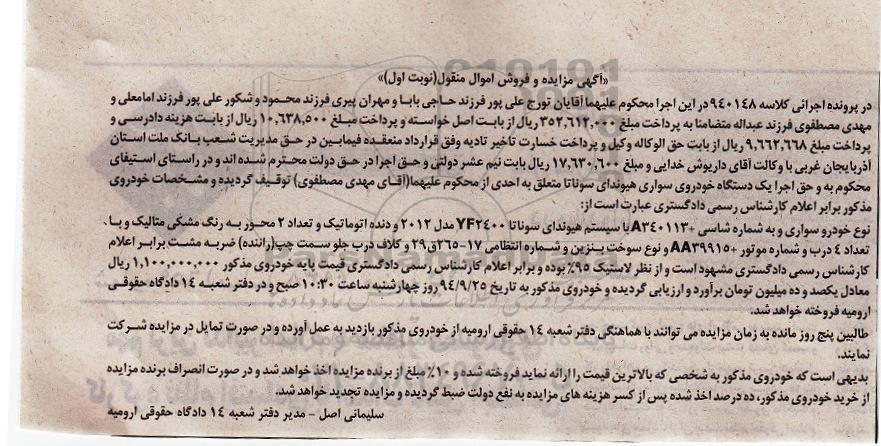 «آگهی مزایده و فروش اموال منقول(نوبت اول)»
در پرونده اجرائی کلاسه ۹۴۰۱۴۸ در این اجرا محکوم علیهما آقایان تورج علی پور فرزند حاجی بابا و مهران پیری فرزند محمود و شکور علی پور فرزند امامعلی و
مهدی مصطفوی فرزند عبداله متضامنا به پرداخت مبلغ ۳۵۲,۶۱۲,۰۰۰ ریال از بابت اصل خواسته و پرداخت مبلغ ۱۰,۶۳۸,۵۰۰ ریال از بابت هزینه دادرسی و
پرداخت مبلغ ۹,۶۶۲,۶۶۸ ریال از بابت حق الوکاله وکیل و پرداخت خسارت تاخیر تادیه وفق قرارداد منعقده فیمابین در حق مدیریت شعب بانک ملت استان
آذربایجان غربی با وکالت آقای داریوش خدایی و مبلغ ۱۷,۶۳۰,۶۰۰ ریال بابت نیم عشر دولتی و حق اجرا در حق دولت محترم شده اند و در راستای استیفای
محکوم به و حق اجرا یک دستگاه خودروی سواری هیوندای سوناتا متعلق به احدی از محکوم علیهما(آقای مهدی مصطفوی) توقیف گردیده و مشخصات خودروی
مذکور برابر اعلام کارشناس رسمی دادگستری عبارت است از:
نوع خودرو سواری و به شماره شاسی +A۳۴۰۱۱۳ با سیستم هیوندای سوناتا YF۲۴۰۰ مدل ۲۰۱۲ و دنده اتوماتیک و تعداد ۲ محور به رنگ مشکی متالیک و با
تعداد ۴ درب و شماره موتور +AA۳۹۹۱۵ و نوع سوخت بنزین و شماره انتظامی ۱۷-۲۶۵ق۲۹ و کلاف درب جلو سمت چپ(راننده) ضربه مشت برابر اعلام
کارشناس رسمی دادگستری مشهود است و از نظر لاستیک ۹۵٪ بوده و برابر اعلام کارشناس رسمی دادگستری قیمت پایه خودروی مذکور ۱,۱۰۰,۰۰۰,۰۰۰ ریال
معادل یکصد و ده میلیون تومان برآورد و ارزیابی گردیده و خودروی مذکور به تاریخ ۹۴/۹/۲۵ روز چهارشنبه ساعت ۱۰:۳۰ صبح و در دفتر شعبه ۱۴ دادگاه حقوقی
ارومیه فروخته خواهد شد.
طالبین پنج روز مانده به زمان مزایده می توانند با هماهنگی دفتر شعبه ۱۴ حقوقی ارومیه از خودروی مذکور بازدید به عمل آورده و در صورت تمایل در مزایده شرکت
نمایند.
بدیهی است که خودروی مذکور به شخصی که بالاترین قیمت را ارائه نماید فروخته شده و ۱۰٪ مبلغ از برنده مزایده اخذ خواهد شد و در صورت انصراف برنده مزایده
از خرید خودروی مذکور، ده درصد اخذ شده پس از کسر هزینه های مزایده به نفع دولت ضبط گردیده و مزایده تجدید خواهد شد.
سلیمانی اصل - مدیر دفتر شعبه ۱۴ دادگاه حقوقی ارومیه